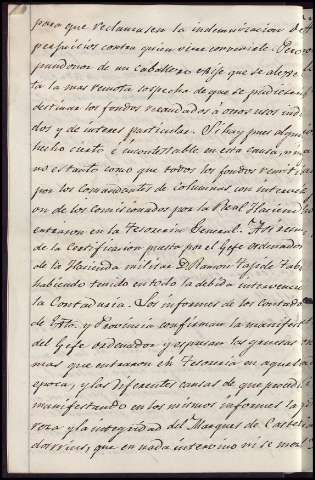 para que reclamasen la indemnizacion de
perjuicios contra quien viere convenirle. Pero
pundonor de un caballero exije que se aleje
ta la mas remota sospecha de que se pudieron
destinar los fondos recaudados á otros usos ind
dos y de interes particular. Si hay pues algun
hecho cierto é incontestable en esta causa, nin
no es tanto como que todos los fondos remiti
por los comandantes de columnas con intervenci
on de los comisionados por la Real Hacienda
entraron en la Tesoreria General. Asi resu
de la Certificacion puesta por el Gefe ordenador
de la Hacienda militar D. Ramon
habiendo tenido en todo la debida intervencion
la Contaduria. Los informes de los Contado
de Egto. y Provincia confirman la manifest
del Gefe ordenador y espresan las gruesas
mas que entraron en Tesoreria en aquella
epoca, y las diferentes causas de que proced
manifestando en los mismos informes la p
reza y la integridad del Marques de Castel
dosrius, que en nada intervino ni se mez